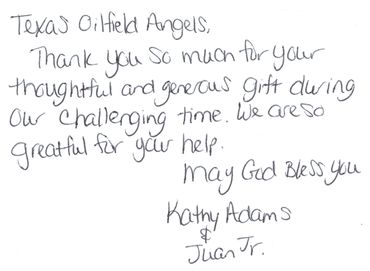 Texas Oilfield Angels,
Thank you so much for your
thoughtful and generous gift during
our challenging time. We are so
greatful for your help.
May God Bless You
Kathy Adams
&
Juan Jr.